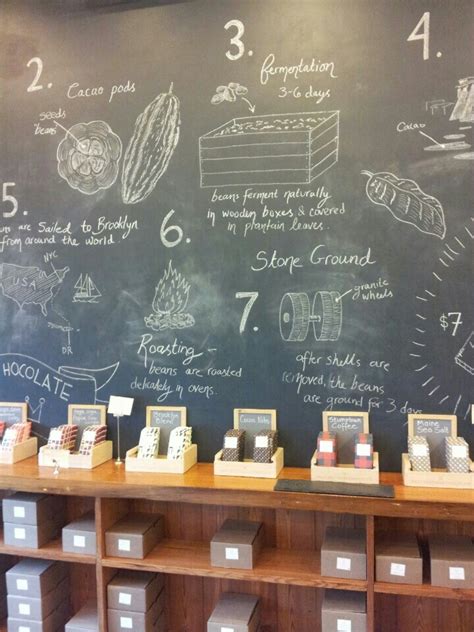 2.
Cacao pods
seeds
beans
3.
fermentation
3-6 days
beans ferment naturally
in wooden boxes & covered
in plantain leaves.
4.
Cacao
5.
are Sailed to Brooklyn
from around the world
NYC
USA
DR
6.
Roasting -
beans are roasted
delicately in ovens.
Stone Ground
7.
granite
wheels
after shells are
removed, the beans
are ground for 3 days
$7
HOCOLATE
Brooklyn
Blend
Cacao Nibs
Stumptown
Coffee
Maine
Sea Salt